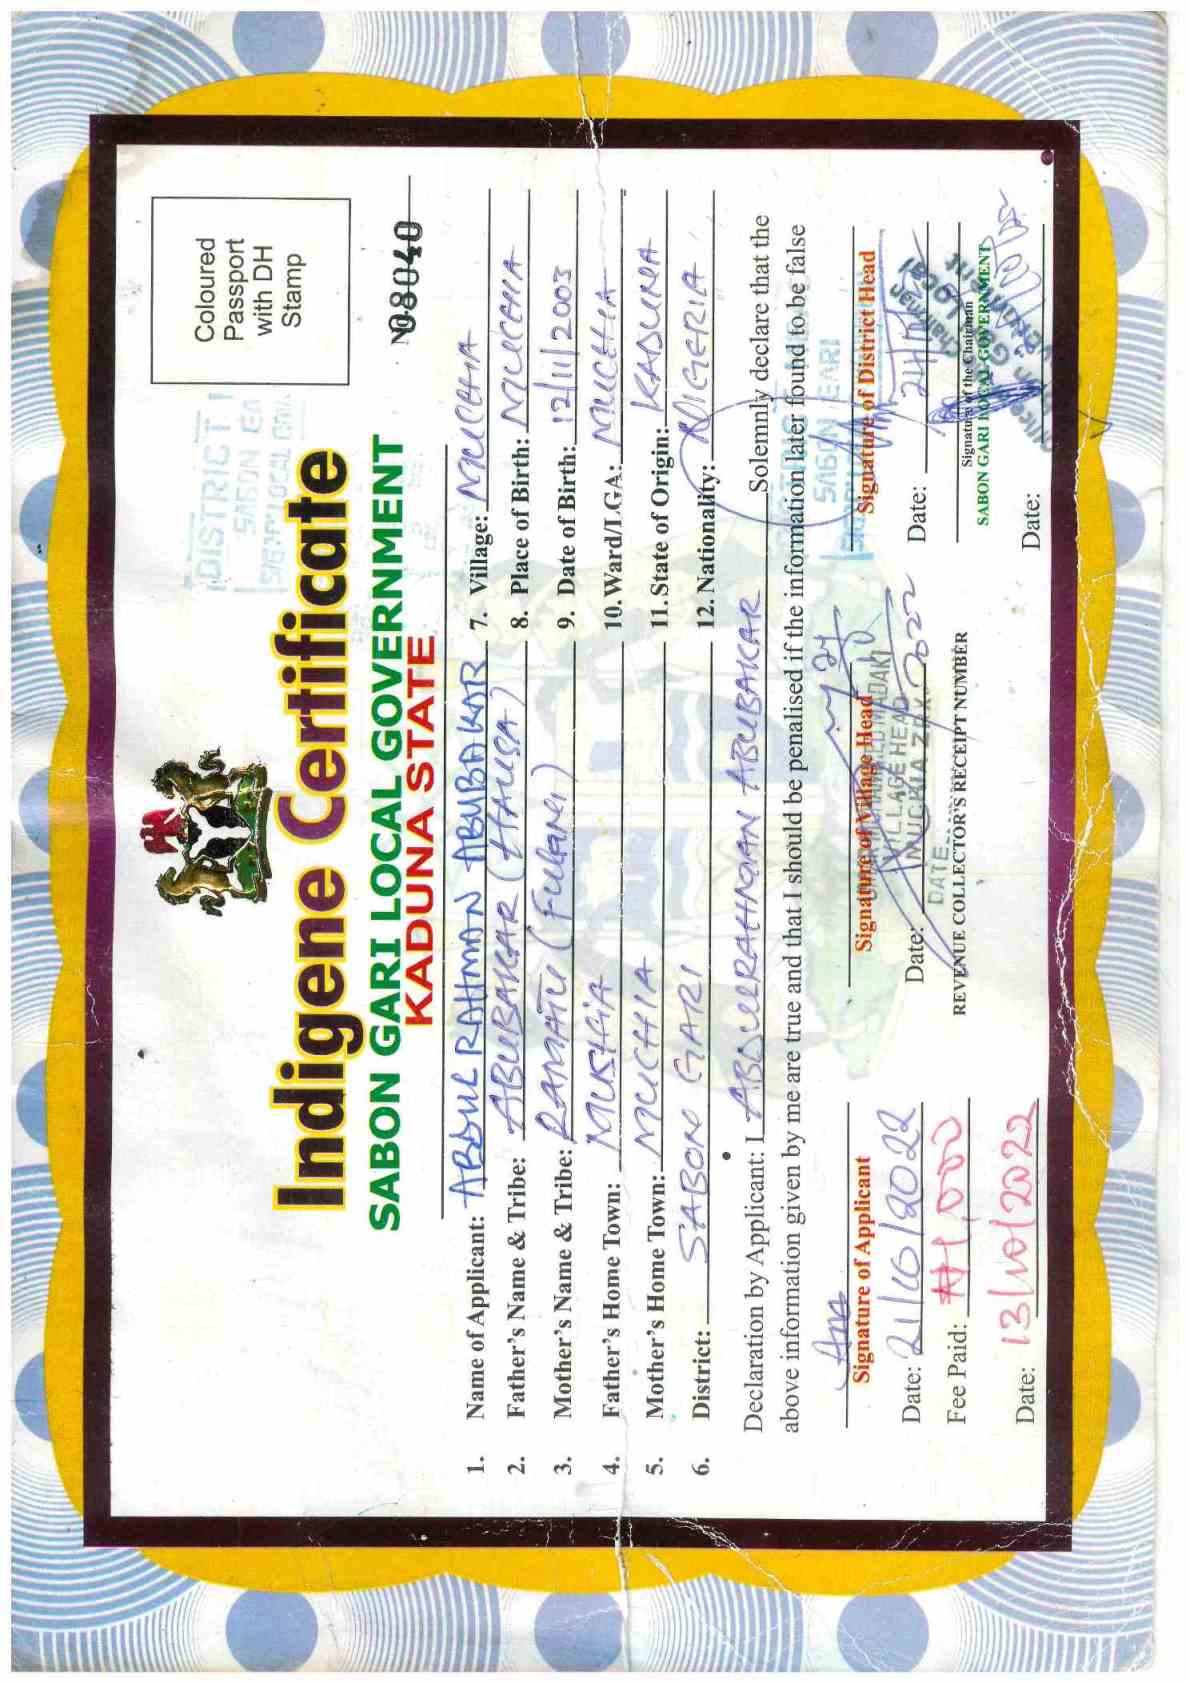 Coloured
Passport
with DH
Stamp
Indigene Certificate
SABON GARI LOCAL GOVERNMENT
KADUNA STATE
No 08040
1. Name of Applicant: ABDUL RAHMAN ABUBAKAR
2. Father's Name & Tribe: ABUBAKAR (HAUSA)
3. Mother's Name & Tribe: RAMATU (Fulani)
4. Father's Home Town: MUSHIA
5. Mother's Home Town: MUCHIA
6. District: SABON GARI
7. Village: MUCHIA
8. Place of Birth: MUCHIA
9. Date of Birth: 12/11/2003
10. Ward/LGA: MUCHIA
11. State of Origin: KADUNA
12. Nationality: NIGERIA
Declaration by Applicant: I ABDULRAHMAN ABUBAKAR Solemnly declare that the
above information given by me are true and that I should be penalised if the information later found to be false
Signature of Applicant
Date: 21/10/2022
Fee Paid: ₦1,000
Date: 13/10/2022
Signature of Village Head
VILLAGE HEAD
MUCHIA
DATE
Date: 2022
REVENUE COLLECTOR'S RECEIPT NUMBER
Signature of District Head
Date:
Signature of the Chairman
SABON GARI LOCAL GOVERNMENT
Date:
DISTRICT
SABON GARI
LOCAL
SABON GARI
Chairman
Local